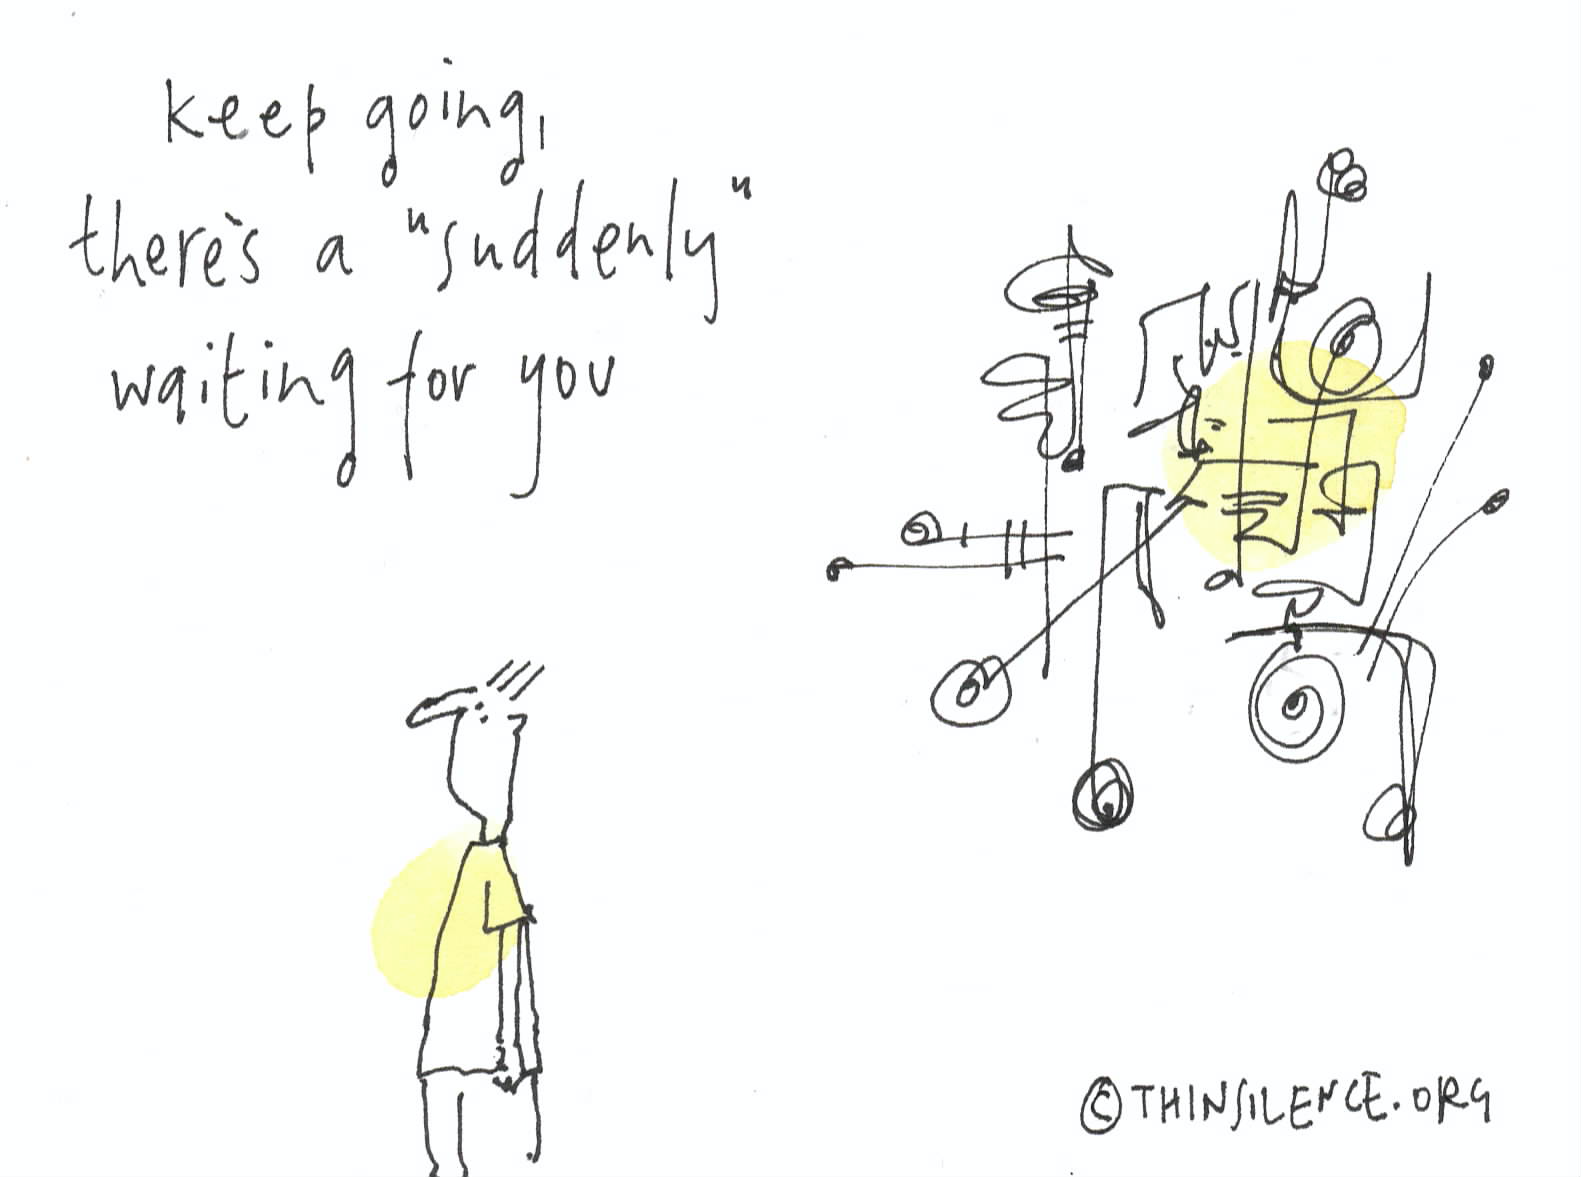 keep going,
there's a "suddenly"
waiting for you
© THINSILENCE.ORG